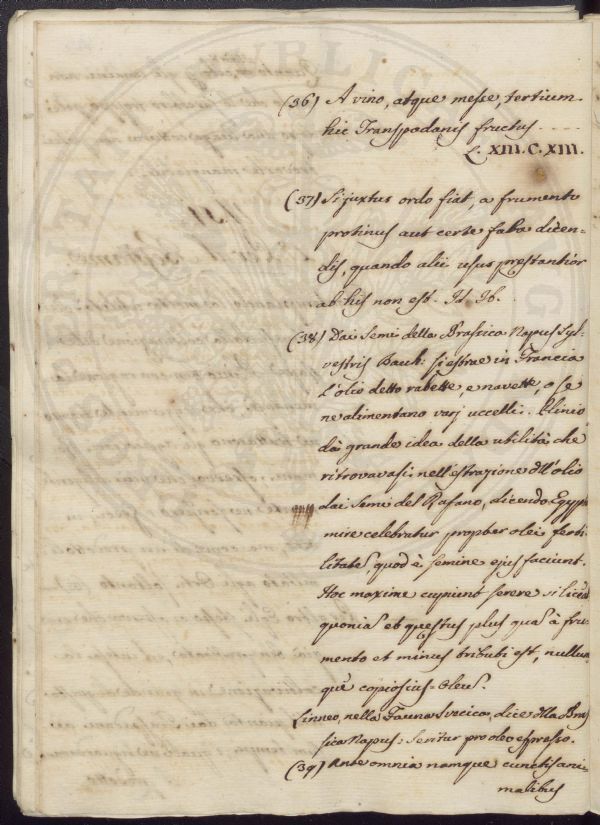 (36) A vino, atque messe, tertium
hic Transpadanis fructus ....
L. XIII. C. XIII.
(37) Si juxtus ordo fiat, a frumento
protinus aut certe faba dicen-
dis, quando alii usus prestantior
ab his non est. Id. Ib.
(38) Dai Semi della Brassica Napus Syl-
vestris Bauh: si estrae in Francia
l'olio detto rabette, e navette, o se
ne alimentano varj uccelli. Plinio
dà grande idea della utilità che
ritrovavasi nell'estrazione dell'olio
dai semi del Rafano, dicendo Egypto
mire celebratur propter olei ferti
litate, quod è semine ejus faciunt.
Hoc maxime cupiunt serere si liceat
quonia et questus plus qua à fru-
mento et minus tributi est, nullum
que copiosius Oleu.
Linneo, nella Fauna Svecica, dice della Bras
sica Napus: Seritur pro oleo espresso.
(39) Ante omnia namque cunctis ani-
malibus